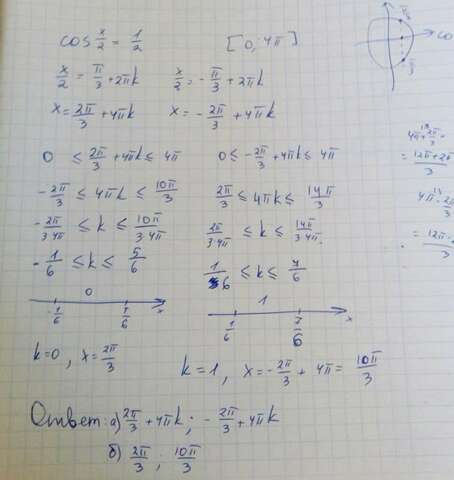 cos x/2 = 1/2 [0; 4π]
x/2 = π/3 + 2πk x/2 = -π/3 + 2πk
x = 2π/3 + 4πk x = -2π/3 + 4πk
0 ≤ 2π/3 + 4πk ≤ 4π 0 ≤ -2π/3 + 4πk ≤ 4π
-2π/3 ≤ 4πk ≤ 10π/3 2π/3 ≤ 4πk ≤ 14π/3
-2π/3·4π ≤ k ≤ 10π/3·4π 2π/3·4π ≤ k ≤ 14π/3·4π
-1/6 ≤ k ≤ 5/6 1/6 ≤ k ≤ 7/6
0 1
-1/6 x 1/6 7/6 x
k=0, x = 2π/3
k=1, x = -2π/3 + 4π = 10π/3
Ответ: а) 2π/3 + 4πk; -2π/3 + 4πk
б) 2π/3; 10π/3
π/3
= 12π+2π/3